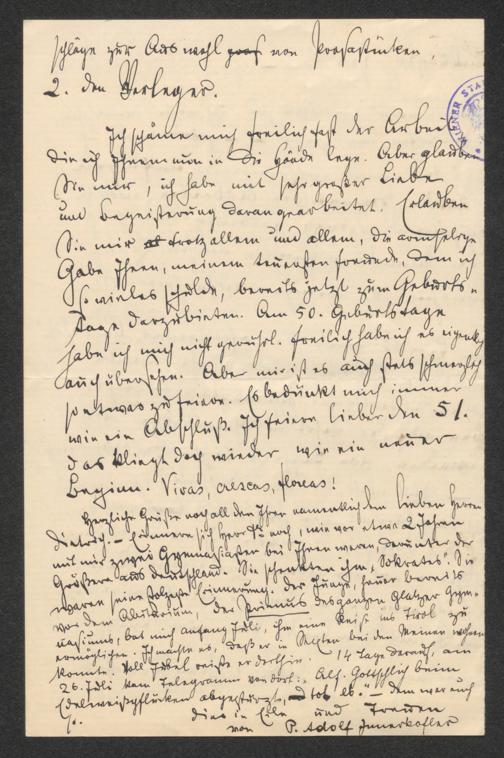 schläge zur Auswahl von Prosastücken,
2. den Verleger.
Ich schäme mich freilich fast der Arbeit
die ich Ihnen nun in die Hände lege. Aber glauben
Sie mir, ich habe mit sehr großer Liebe
und Begeisterung daran gearbeitet. Erlauben
Sie mir trotz allem und allem, die armselige
Gabe Ihnen, meinem teuersten Freunde, dem ich
so vieles schulde, bereits jetzt zum Geburts-
tage darzubieten. Am 50. Geburtstage
habe ich mich nicht gerührt. Freilich habe ich es eigentlich
auch übersehen. Aber mir ist es auch stets schmerzlich
so etwas zu feiern. Es bedünkt mich immer
wie ein Abschluß. Ich feiere lieber den 51.
das klingt doch wieder wie ein neuer
Beginn. Vivas, crescas, floreas!
Herzliche Grüße noch all den Ihren namentlich dem lieben Herrn
Dietrich. – Erinnern sich Herr noch, wie vor etwa 2 Jahren
mit mir zwei Gymnasiasten bei Ihnen waren, darunter der
Größere aus Deutschland. Sie schenkten ihm "Sokrates". Sie
waren seine Erinnerung. Der Junge, heuer bereits
vor dem Abiturium, der Primus des ganzen Glatzer Gym-
nasiums, bat mich anfang Juli, ihm eine Reise ins Tirol zu
ermöglichen. Ich machte es, daß er in Sexten bei den Meinen wohnen
konnte. Voll Jubel reiste er dorthin. 14 Tage darauf, am
26. Juli kam Telegramm von dort: "Alf. Gottschlich beim
Edelweißpflücken abgestürzt, tot." – dem war auch
so.
dies in Eile und Treuen
von P. Adolf Innerkofler
WIENER STA